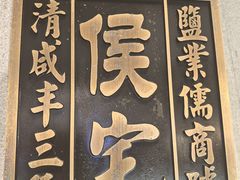 鹽業儒商
侯宅
清咸丰三